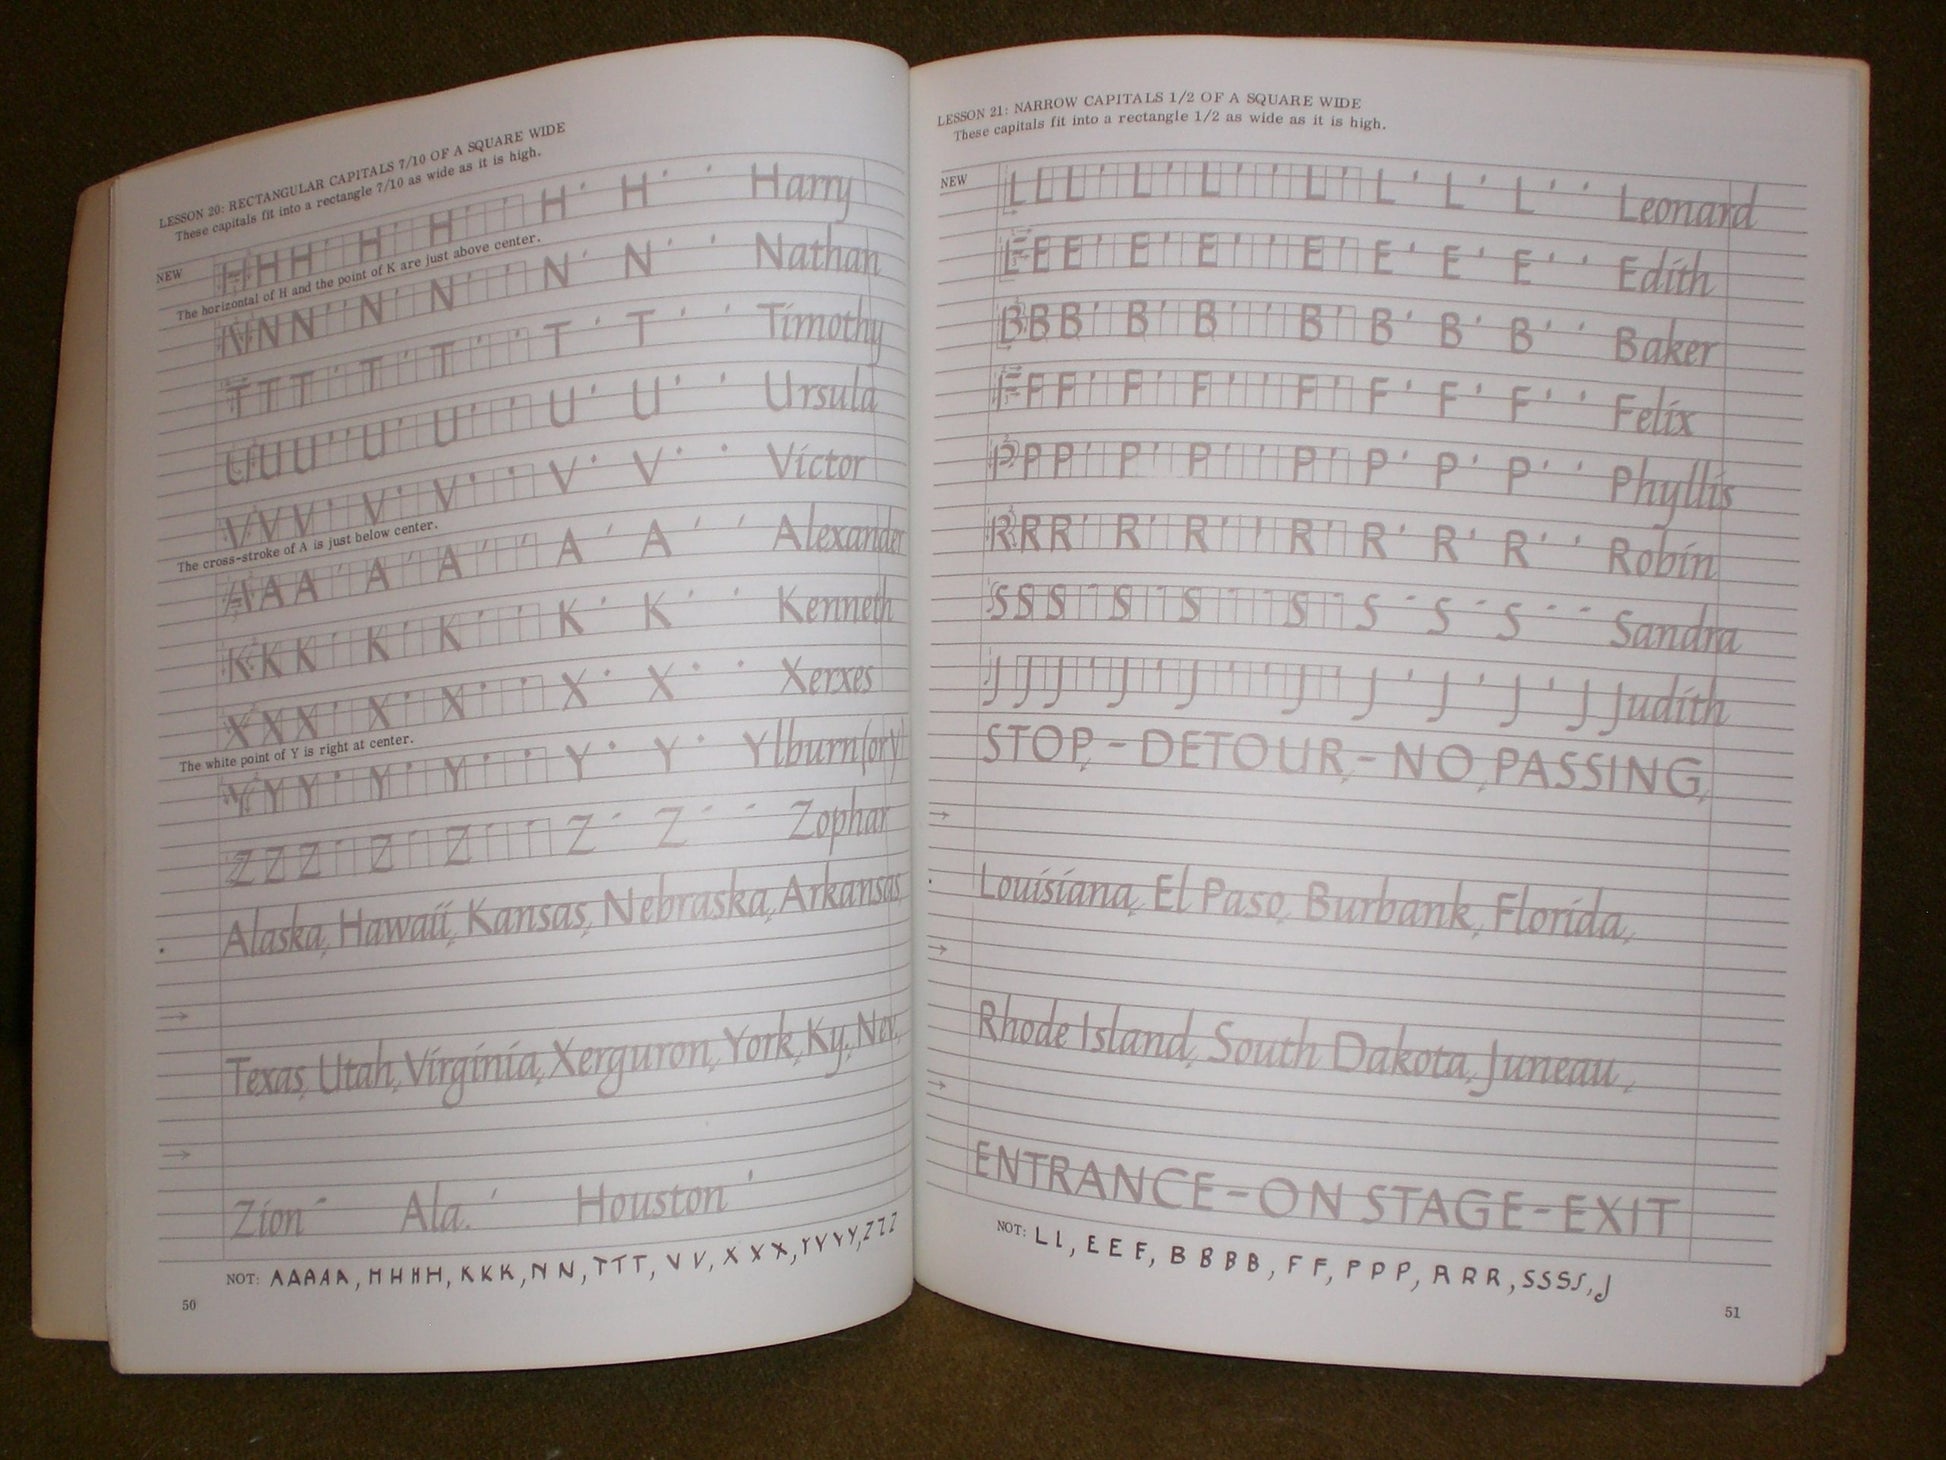 LESSON 20: RECTANGULAR CAPITALS 7/10 OF A SQUARE WIDE
These capitals fit into a rectangle 7/10 as wide as it is high.
NEW H H H H H H H Harry
The horizontal of H and the point of K are just above center.
N N N N N N N Nathan
T T T T T T T Timothy
U U U U U U U Ursula
V V V V V V V Victor
The cross-stroke of A is just below center.
A A A A A A A Alexander
K K K K K K K Kenneth
X X X X X X X Xerxes
The white point of Y is right at center.
Y Y Y Y Y Y Y Ylburn (or Y)
Z Z Z Z Z Z Z Zophar
Alaska, Hawaii, Kansas, Nebraska, Arkansas,
Texas, Utah, Virginia, Xerguron, York, Ky., Nev.
Zion Ala. Houston
NOT: AAAAA, HHHH, KKK, NN, TTT, VV, XXX, YYYY, ZZZ
50
LESSON 21: NARROW CAPITALS 1/2 OF A SQUARE WIDE
These capitals fit into a rectangle 1/2 as wide as it is high.
NEW L L L L L L L L L Leonard
E E E E E E E E E Edith
B B B B B B B B B Baker
F F F F F F F F F Felix
P P P P P P P P P Phyllis
R R R R R R R R R Robin
S S S S S S S S S Sandra
J J J J J J J J J J Judith
STOP, - DETOUR, - NO, PASSING,
Louisiana, El Paso, Burbank, Florida,
Rhode Island, South Dakota, Juneau,
ENTRANCE - ON STAGE - EXIT
NOT: LL, EEF, BBBB, FF, PPP, RRR, SSSS, J
51